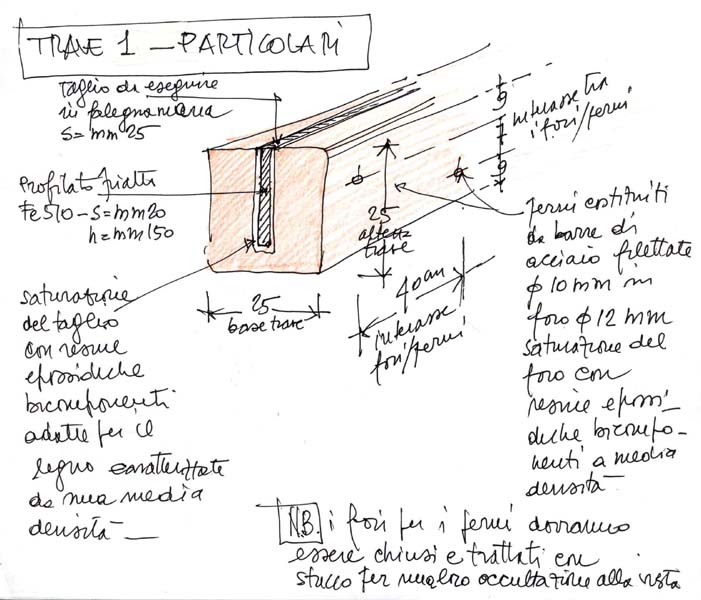 TRAVE 1 — PARTICOLARI
taglio da eseguire
in falegnameria
s = mm 25
Profilato piatto
Fe 510 – s = mm 20
h = mm 150
saturazione
del taglio
con resine
epossidiche
bicomponenti
adatte per il
legno caratterizzate
da una media
densità —
25
base trave
25
altezza
trave
40 cm
interasse
fori/fermi
9
7
9
interasse tra
i fori/fermi
fermi costituiti
da barre di
acciaio filettate
φ 10 mm in
foro φ 12 mm
saturazione del
foro con
resine epossi–
diche bicompo–
nenti a media
densità
N.B. i fori per i fermi dovranno
essere chiusi e trattati con
stucco per occultazione alla vista